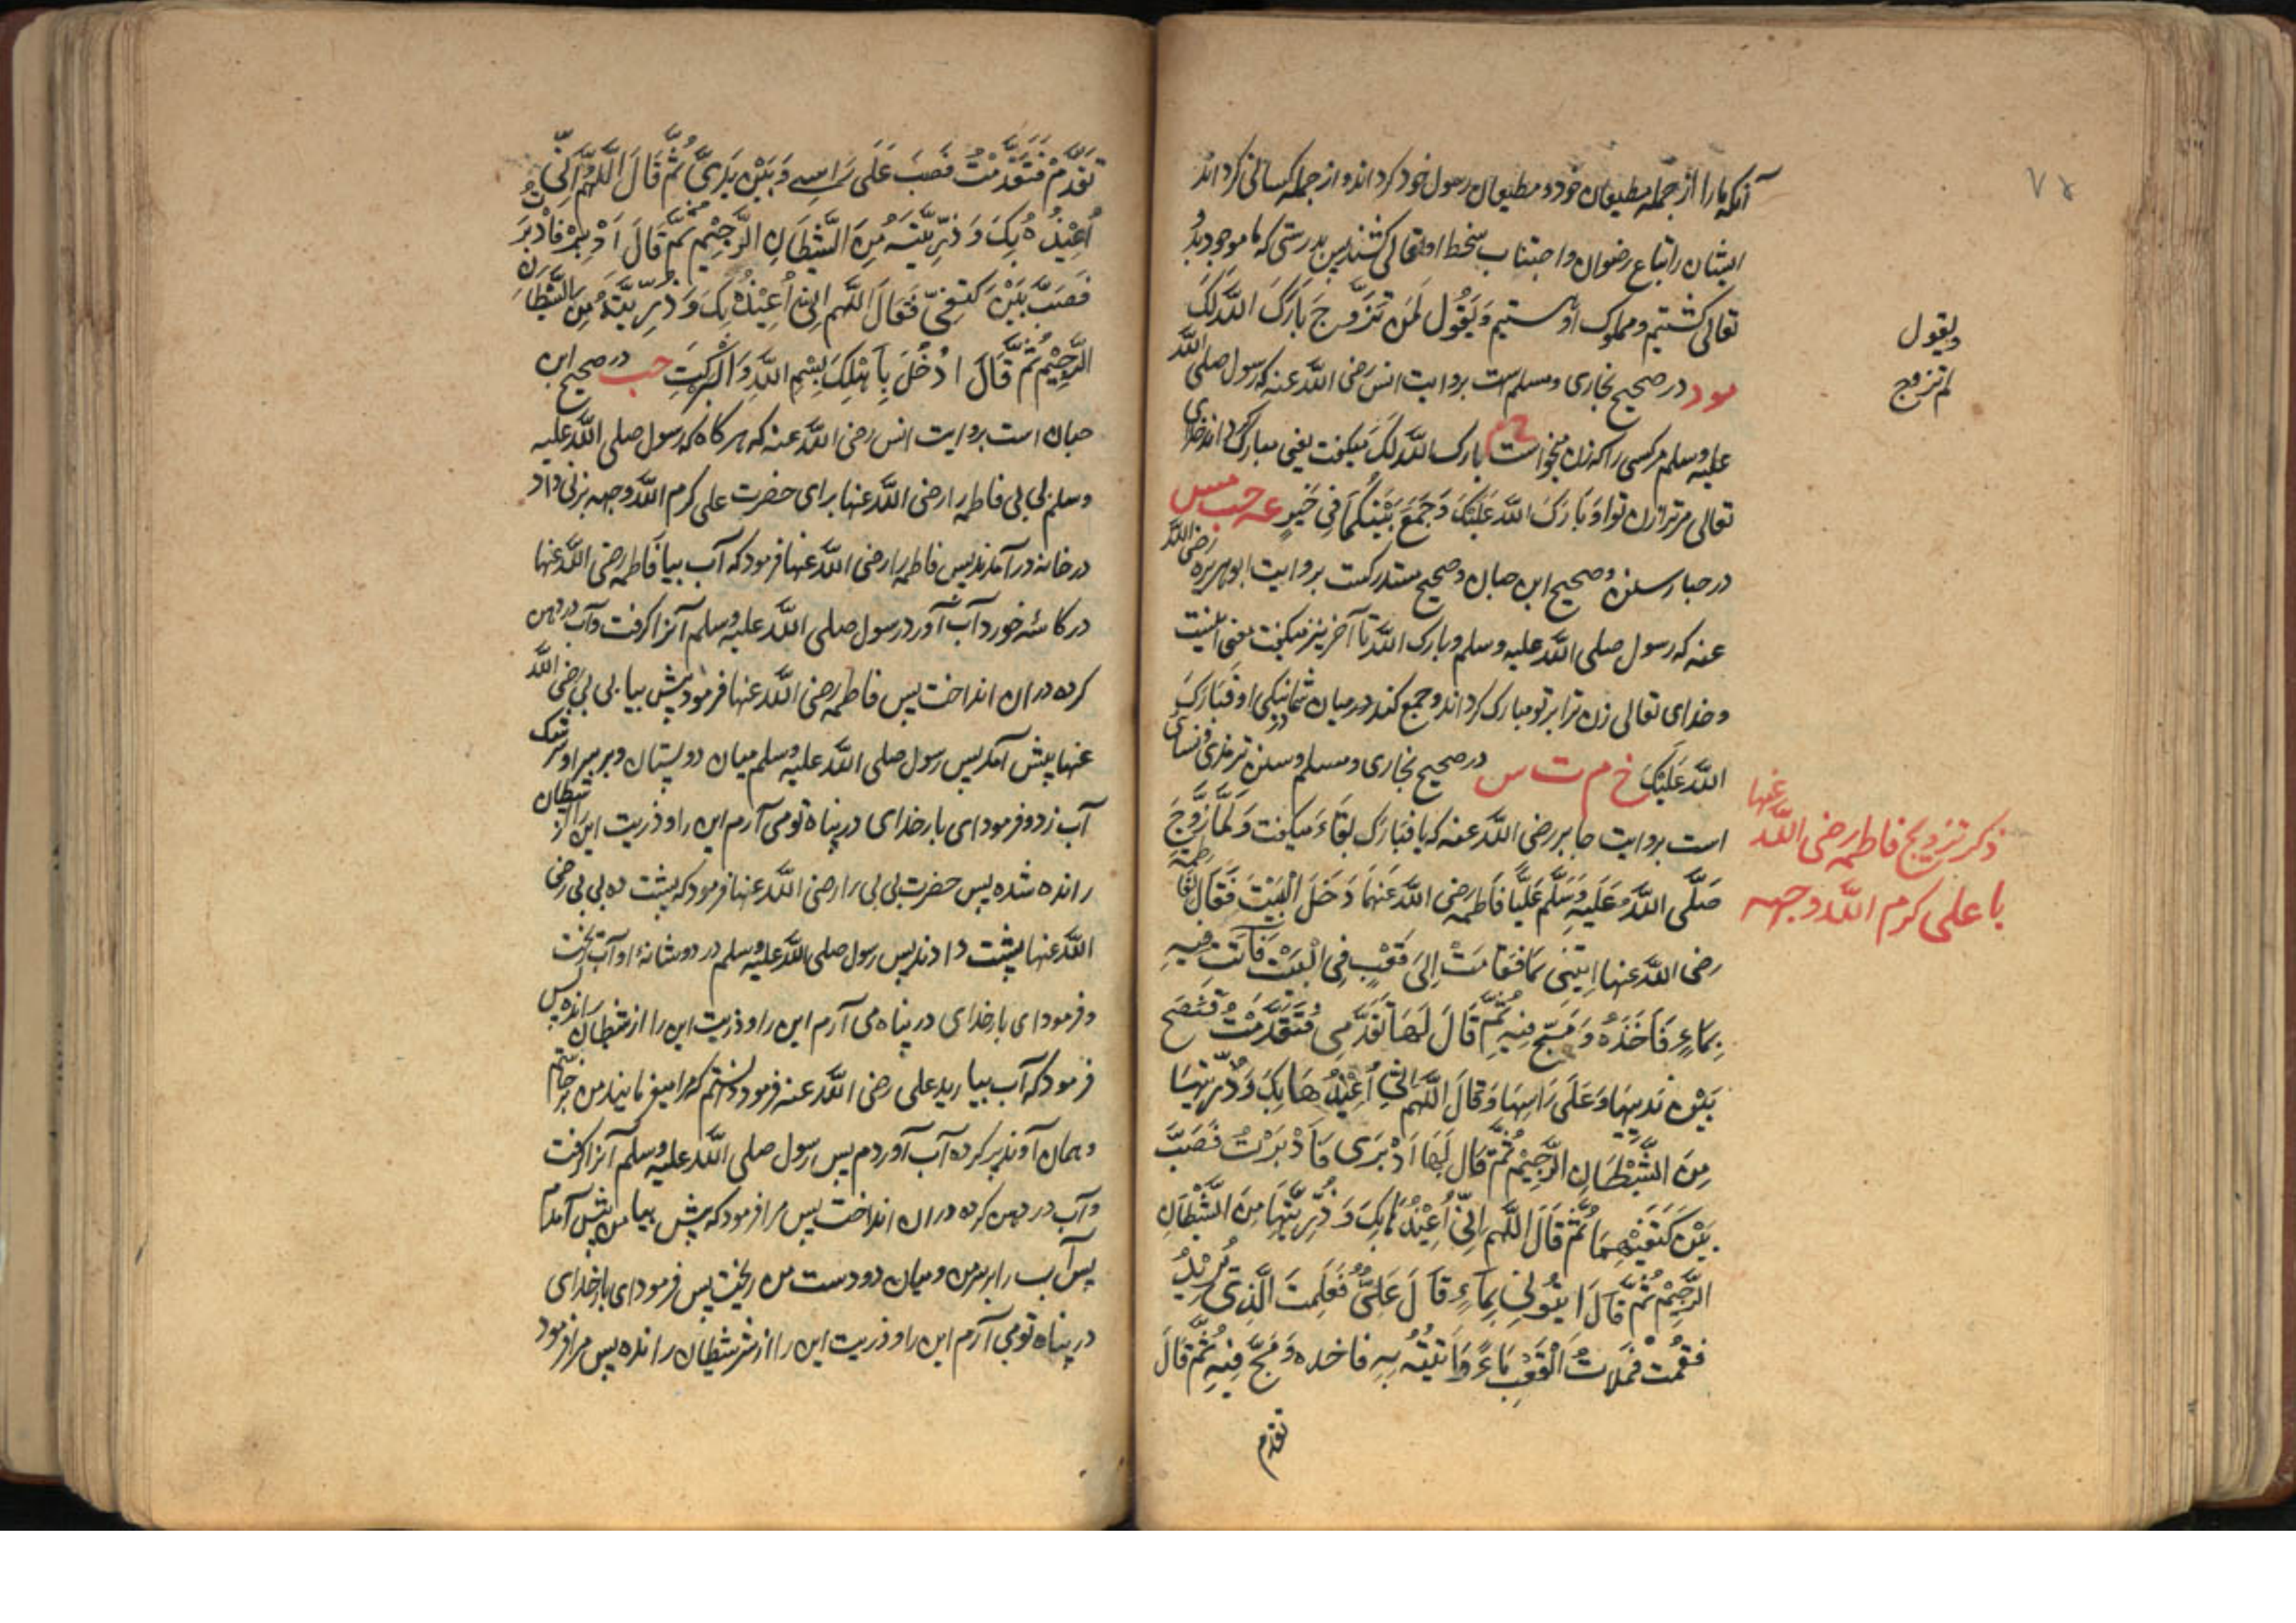 ٧٤
آنکه ما را از جمله مطیعان خود و مطیعان رسول خود کرداند و از جمله کسانی کرداند
ایشان را اتباع رضوان و اجتناب سخط او تعالی کنند پس بدرستی که ما موجود بذ
تعالی کشتیم و مملوک او هستیم وَيَقُول لَمن تَزَوَّجَ بَارَكَ اللَّه لَكَ
ويقول
لم تزوج
مود در صحیح بخاری و مسلم است بروایت انس رضی الله عنه که رسول صلی الله
علیه وسلم مر کسی را که زن میخواست بارک الله لک میکفت یعنی مبارک کرداند خدای
تعالی مر ترا زن ترا وَبَارَكَ اللَّه عَلَيْكَ وَجَمَعَ بَيْنَكُمَا فِي خَيْرٍ عه حب مس
در چهار سنن و صحیح ابن حبان و صحیح مستدرکست بروایت ابوهریره رضی الله
عنه که رسول صلی الله علیه وسلم و بارک الله تا آخر نیز میکفت معنی اینست
و خدای تعالی زن ترا بر تو مبارک کرداند و جمع کند در میان شما نیکی او فَبَارَكَ
اللَّه عَلَيْكَ خ م ت س در صحیح بخاری و مسلم و سنن ترمذی و نسائی
است بروایت جابر رضی الله عنه که یا فبارک بفاء میکفت وَلَمَّا زَوَّجَ
ذکر تزویج فاطمه رضی الله عنها
با علی کرم الله وجهه
صَلَّى اللَّه عَلَيْهِ وَسَلَّم عَلِيًّا فَاطِمَه رضی الله عَنهمَا دَخَلَ الْبَيْتَ فَقَالَ لفاطمة
رضی الله عنها اِيتِنِي بمَا فَقَامَتْ اِلَى قَعْبٍ فِي الْبَيْتِ فَأَتَتْ فِيهِ
بِمَاءٍ فَاَخَذَهُ وَمَجَّ فِيهِ ثُمَّ قَالَ لَهَا تَقَدَّمِي فَتَقَدَّمَتْ فَنَضَحَ
بَيْنَ ثَدْيَيْهَا وَعَلَى رَاسِهَا وَقَالَ اللَّهُمَّ اِنِّي اُعِيْذُهَا بِكَ وَذُرِّيَّتِهَا
مِنَ الشَّيْطَانِ الرَّجِيْمِ ثُمَّ قَالَ لَهَا اَدْبَرِي فَاَدْبَرَتْ فَصَبَّ
بَيْنَ كَتَفَيْهِمَا ثُمَّ قَالَ اللَّهُم اِنِّي اُعِيْذُهَا بِكَ وَ ذُرِّيَّتِهَا مِنَ الشَّيْطَانِ
الرَّجِيْمِ ثُمَّ قَالَ ايتُونِي بِمَاءٍ قَالَ عَلِيٌّ فَعَلِمتَ الَّذِي يُرِيْدُ
فَقُمْتُ فَمَلَاتُ الْقَعْبَ مَاءً وَاَتَيْتُه بِهِ فاخده وَمَجَّ فِيهِ ثُمَّ قَالَ
تقدم
تَقَدَّمْ فَتَقَدَّمْتُ فَصَبَ عَلَى رَاسِي وَبَيْنَ يَدَيَّ ثُمَّ قَالَ اللَّهُمَّ اِنِّي
اُعِيْذُهُ بِكَ وَذُرِّيَّتَهُ مِنَ الشَّيْطَانِ الرَّجِيْمِ ثُمَّ قَالَ اَدْبِرْ فَاَدْبَرْتُ
فَصَبَّ بَيْنَ كَتِفَيَّ فَقَالَ اللَّهُم اِنِّي اُعِيْذُهُ بِكَ وَذُرِّيَّتَهُ مِنَ الشَّيْطَانِ
الرَّجِيْمِ ثُمَّ قَالَ ادْخُلَ بِاَهْلِكَ بِسْمِ اللَّهِ وَالْبَرَكَتِ حب در صحیح ابن
حبان است بروایت انس رضی الله عنه که هر کاه که رسول صلی الله علیه
وسلم بی بی فاطمه را رضی الله عنها برای حضرت علی کرم الله وجهه بزنی داد
در خانه در آمدند پس فاطمه را رضی الله عنها فرمود که آب بیا فاطمه رضی الله عنها
در کاسه خورد آب آورد رسول صلی الله علیه وسلم آنرا کرفت و آب در دهن
کرده در ان انداخت پس فاطمه رضی الله عنها فرمود پیش بیا بی بی رضی الله
عنها پیش آمد پس رسول صلی الله علیه وسلم میان دو پستان و بر سر او
آب زد و فرمود ای بار خدای در پناه تو می آرم این را و ذریت این را از شیطان
رانده شده پس حضرت بی بی را رضی الله عنها فرمود که پشت ده بی بی رضی
الله عنها پشت دادند پس رسول صلی الله علیه وسلم در دو شانهٔ او آب ریخت
و فرمود ای بار خدای در پناه می آرم این را و ذریت این را از شیطان رانده پس
فرمود که آب بیارید علی رضی الله عنه فرمود دانستم که مرا میفرمایند من برخاستم
و همان آوند پر کرده آب آوردم پس رسول صلی الله علیه وسلم آنرا کرفت
و آب در دهن کرده در ان انداخت پس مرا فرمود که پیش بیا من پیش آمدم
پس آب را بر سر من و میان دو دست من ریخت پس فرمود ای بار خدای
در پناه تو می آرم این را و ذریت این را از شر شیطان رانده پس مرا فرمود